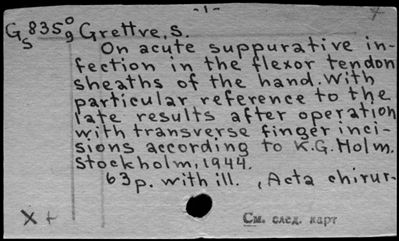 -1-
G 835° Grettve, S.
S 9
On acute suppurative in-
fection in the flexor tendon
sheaths of the hand. With
particular reference to the
late results after operation
with transverse finger inci-
sions according to K.G. Holm.
Stockholm, 1944.
63p. with ill. , Acta chirur-
x +
См. след. карт